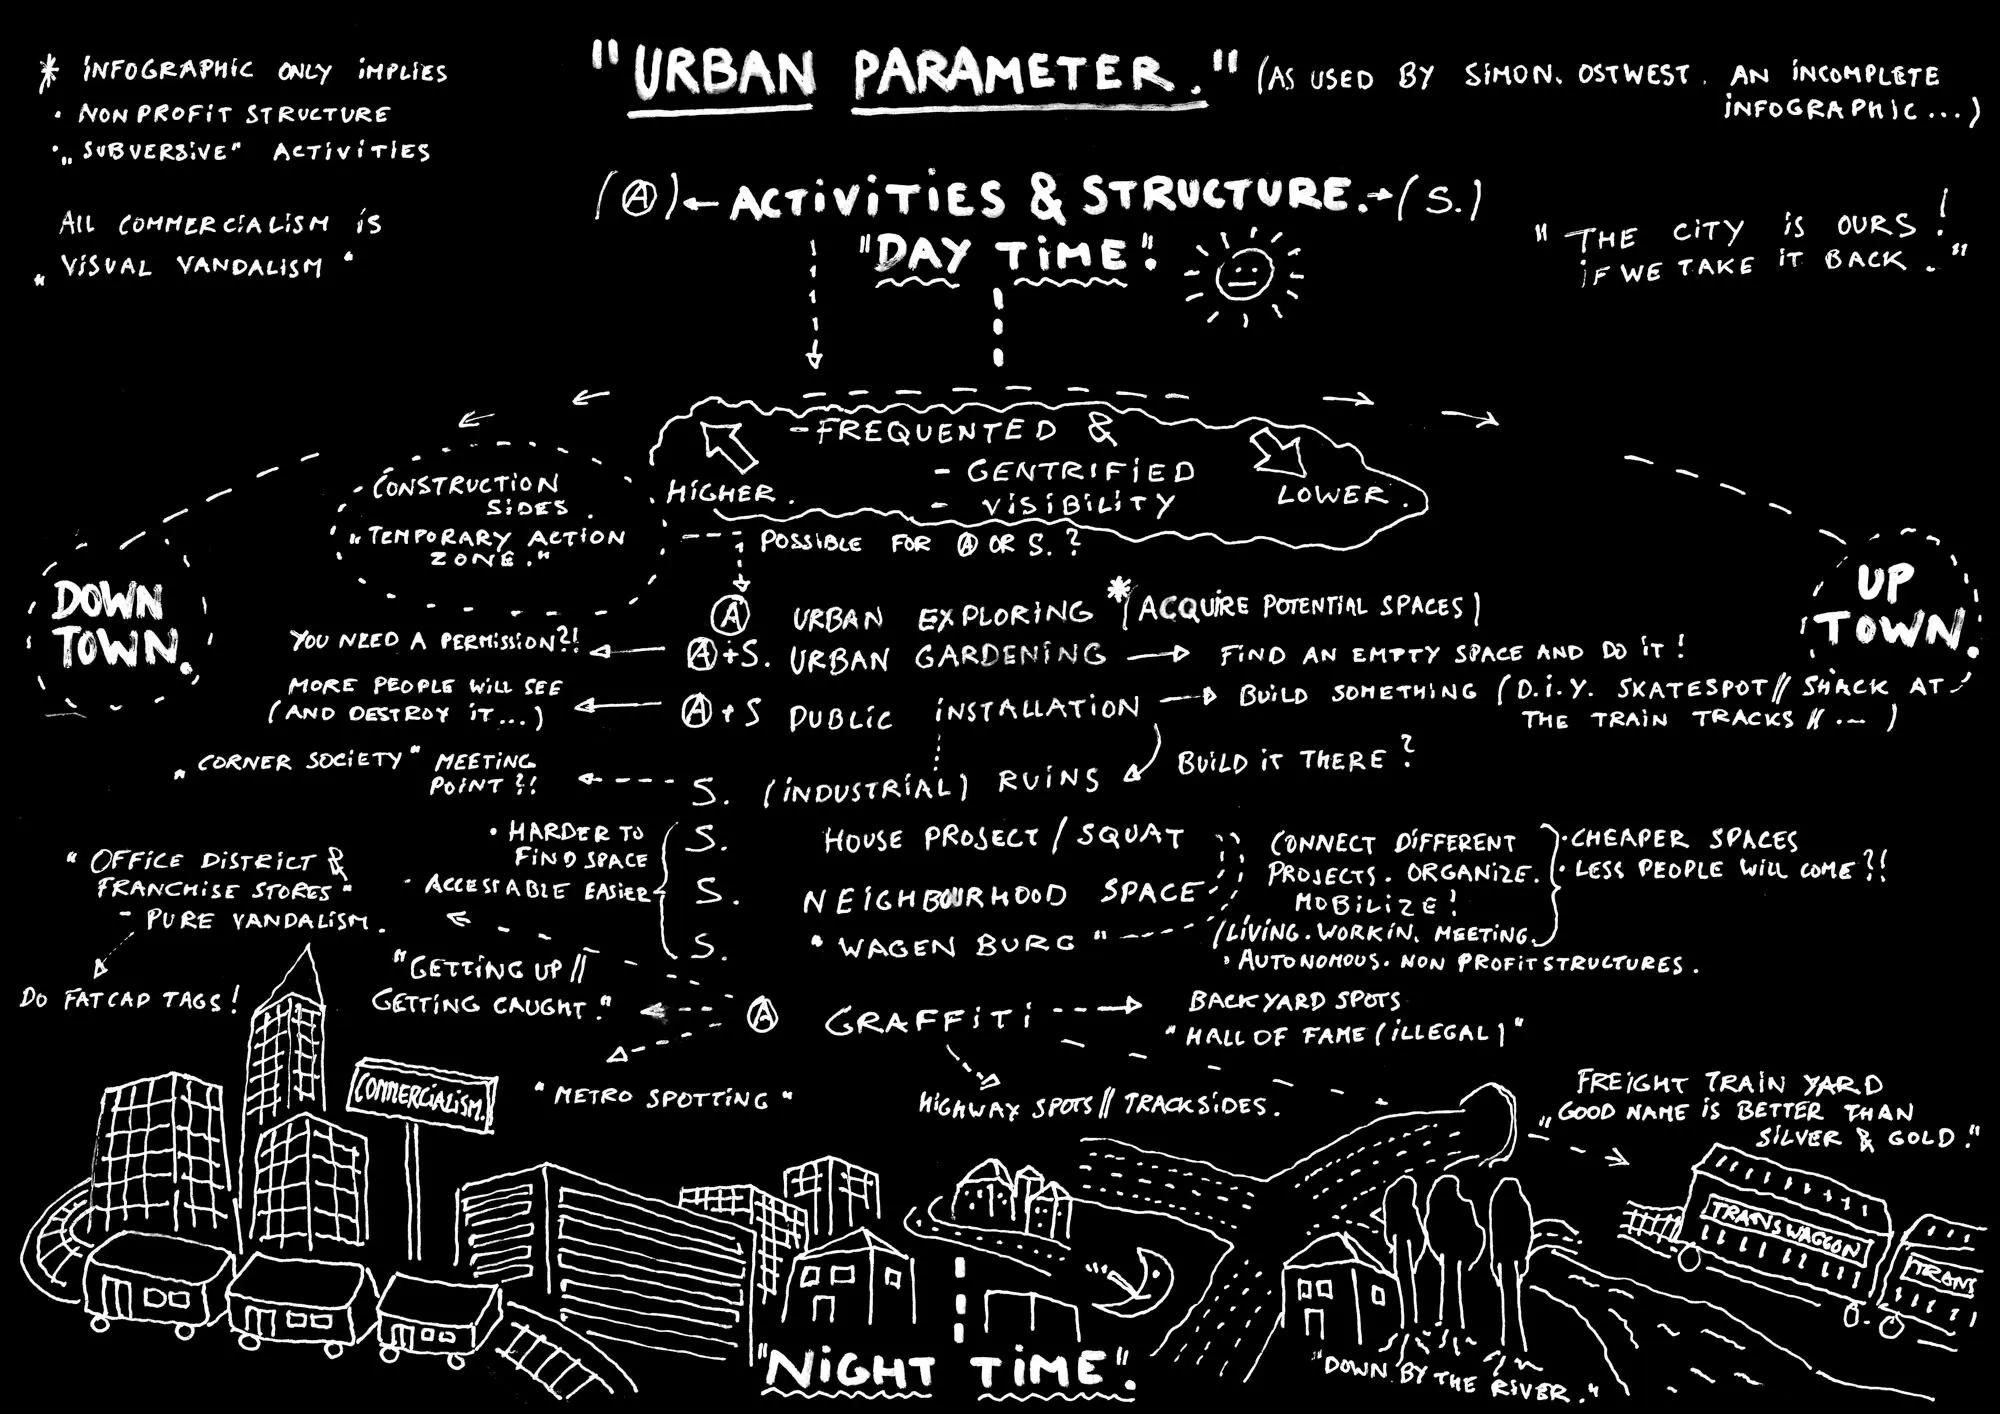 "URBAN PARAMETER."
(AS USED BY SIMON. OSTWEST. AN INCOMPLETE
INFOGRAPHIC...)
* INFOGRAPHIC ONLY IMPLIES
• NON PROFIT STRUCTURE
• „SUBVERSIVE" ACTIVITIES
ALL COMMERCIALISM IS
„VISUAL VANDALISM"
(Ⓐ) ← ACTIVITIES & STRUCTURE. → (S.)
"DAY TIME".
"THE CITY IS OURS!
IF WE TAKE IT BACK."
- FREQUENTED &
- GENTRIFIED
- VISIBILITY
HIGHER.
LOWER.
- CONSTRUCTION
SIDES.
„TEMPORARY ACTION
ZONE."
POSSIBLE FOR Ⓐ OR S.?
DOWN
TOWN.
UP
TOWN.
Ⓐ URBAN EXPLORING * (ACQUIRE POTENTIAL SPACES)
YOU NEED A PERMISSION?!
Ⓐ+S. URBAN GARDENING → FIND AN EMPTY SPACE AND DO IT!
MORE PEOPLE WILL SEE
(AND DESTROY IT...)
Ⓐ+S PUBLIC INSTALLATION → BUILD SOMETHING (D.I.Y. SKATESPOT // SHACK AT
THE TRAIN TRACKS // ...)
„CORNER SOCIETY" MEETING
POINT?!
S. (INDUSTRIAL) RUINS
BUILD IT THERE?
• HARDER TO
FIND SPACE
• ACCESTABLE EASIER
S. HOUSE PROJECT / SQUAT
S. NEIGHBOURHOOD SPACE
S. "WAGEN BURG"
CONNECT DIFFERENT
PROJECTS. ORGANIZE.
MOBILIZE!
(LIVING. WORKIN. MEETING.
• AUTONOMOUS. NON PROFIT STRUCTURES.
• CHEAPER SPACES
• LESS PEOPLE WILL COME?!
"OFFICE DISTRICT &
FRANCHISE STORES"
- PURE VANDALISM.
DO FATCAP TAGS!
"GETTING UP //
GETTING CAUGHT."
Ⓐ GRAFFITI
BACKYARD SPOTS
"HALL OF FAME (ILLEGAL)"
"METRO SPOTTING"
HIGHWAY SPOTS // TRACKSIDES.
FREIGHT TRAIN YARD
„GOOD NAME IS BETTER THAN
SILVER & GOLD."
COMMERCIALISM.
TRANSWAGGON
TRANS
"NIGHT TIME".
"DOWN BY THE RIVER."